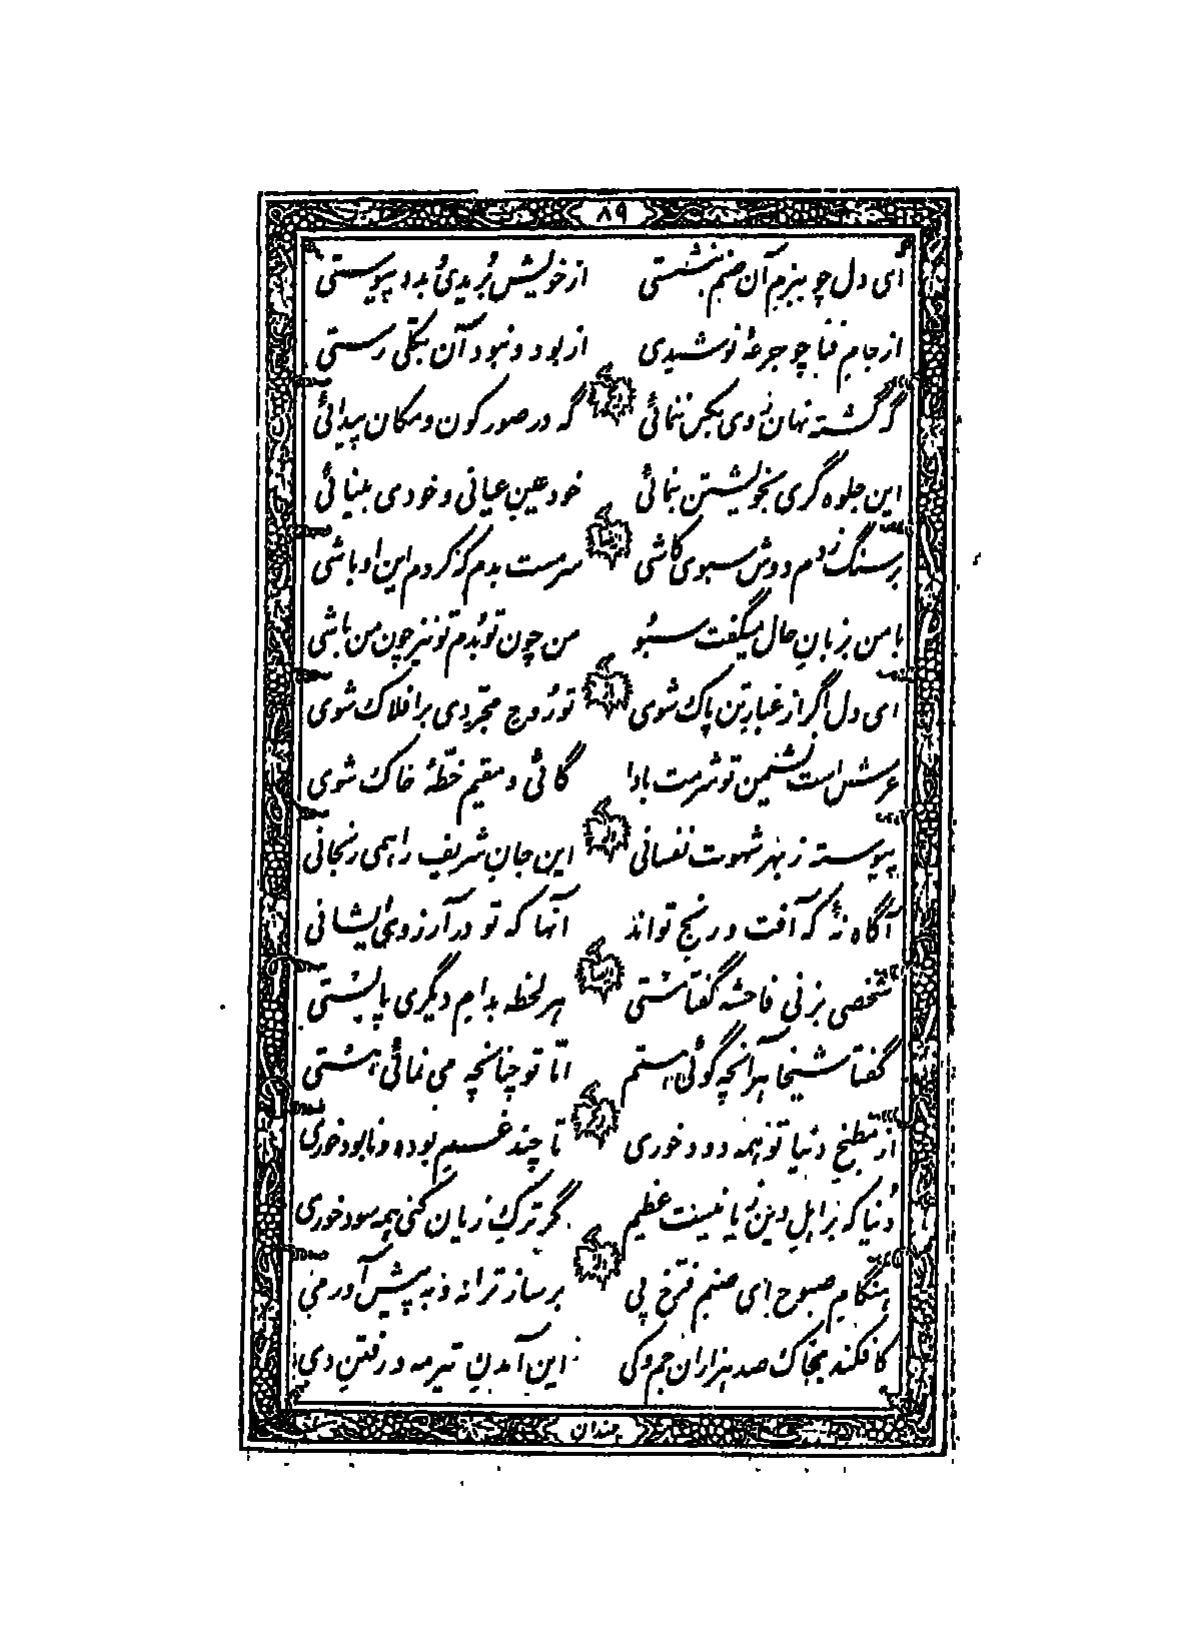 ۸۹
ای دل چو ببزم آن صنم بنشستی از خویش بُریدیُ بدو پیوستی
از جام فنا چو جرعهٔ نوشیدی از بود و نبود آن بکلّی رستی
گه گشته نهان روی بکس ننمائی گه در صور کون و مکان پیدائی
این جلوه گری بخویشتن بنمائی خود عین عیانی و خودی بینائی
ایضا
بر سنگ زدم دوش سبوی کاشی سرمست بدم که کردم این اوباشی
با من بزبان حال میگفت سبُو من چون تو بُدم تو نیز چون من باشی
ای دل اگر از غبار تن پاک شوی تو روح مجرّدی بر افلاک شوی
عرش است نشیمن تو شرمت بادا کائی و مقیم خطّهٔ خاک شوی
پیوسته ز بهر شهوت نفسانی این جان شریف را همی رنجانی
آگاه نهٔ که آفت و رنج تواند آنها که تو در آرزوی ایشانی
ایضا
شخصی بزنی فاحشه گفتا مستی هر لحظه بدام دیگری پابستی
گفتا شیخا هر آنچه گوئی هستم امّا تو چنانچه می نمائی هستی
از مطبخ دنیا تو همه دود خوری تا چند غم بوده و نابود خوری
دُنیا که بر اهل دین زیانیست عظیم گر ترک زیان کنی همه سود خوری
هنگام صبوح ای صنم فرّخ پی بر ساز ترانه و به پیش آور می
کافکند بخاک صد هزاران جم و کی این آمدن تیر مه و رفتن دی
چندان